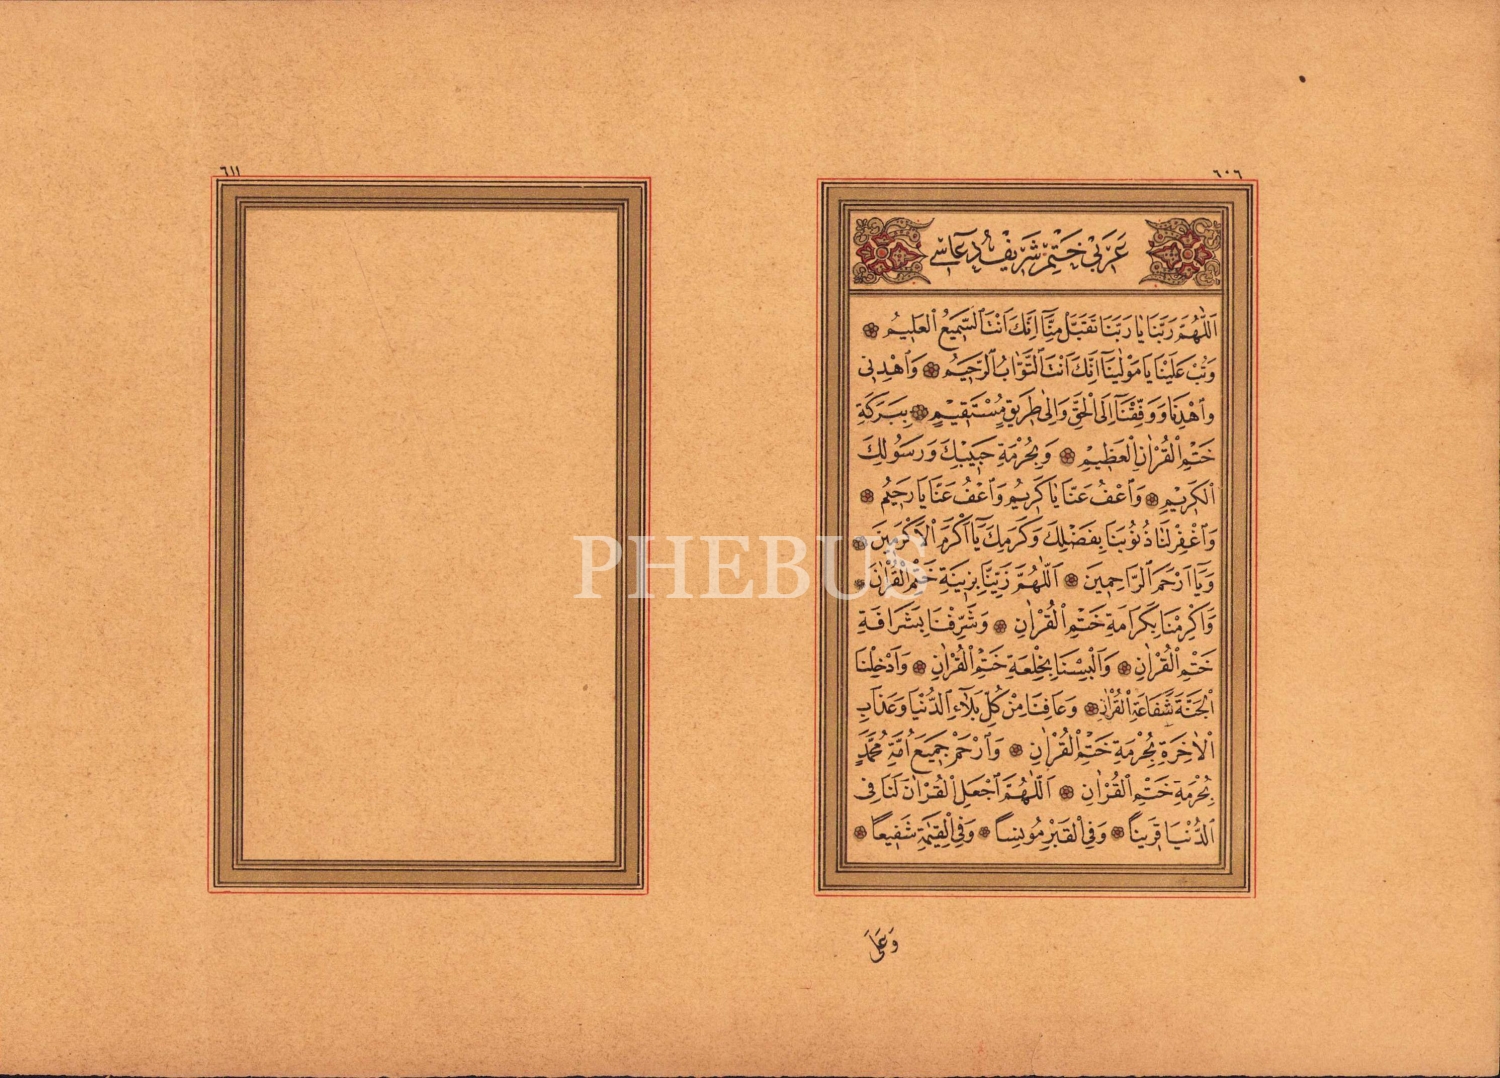 ٦٠٦
عَرَبِي خَتْمِ شَرِيفْ دُعَاسِي
اَللّٰهُمَّ رَبَّنَا يَا رَبَّنَا تَقَبَّلْ مِنَّآ اِنَّكَ اَنْتَ ٱلسَّمِيعُ ٱلْعَلِيمُ
وَتُبْ عَلَيْنَا يَا مَوْلٰينَآ اِنَّكَ اَنْتَ ٱلتَّوَّابُ ٱلرَّحِيمُ وَٱهْدِنِى
وٱهْدِنَا وَوَفِّقْنَآ اِلَى ٱلْحَقِّ وَاِلٰى طَرِيقٍ مُسْتَقِيمٍ بِبَرَكَةِ
خَتْمِ ٱلْقُرْاٰنِ ٱلْعَظِيمِ وَبِحُرْمَةِ حَبِيبِكَ وَرَسُولِكَ
ٱلْكَرِيمِ وَٱعْفُ عَنَّا يَا كَرِيمُ وَٱعْفُ عَنَّا يَا رَحِيمُ
وَٱغْفِرْلَنَا ذُنُوبَنَا بِفَضْلِكَ وَكَرَمِكَ يَآ اَكْرَمَ ٱلْاَكْرَمِينَ
وَيَآ اَرْحَمَ ٱلرَّاحِمِينَ اَللّٰهُمَّ زَيِّنَّا بِزِينَةِ خَتْمِ ٱلْقُرْاٰنِ
وَاَكْرِمْنَا بِكَرَامَةِ خَتْمِ ٱلْقُرْاٰنِ وَشَرِّفْنَا بِشَرَافَةِ
خَتْمِ ٱلْقُرْاٰنِ وَاَلْبِسْنَا بِخِلْعَةِ خَتْمِ ٱلْقُرْاٰنِ وَاَدْخِلْنَا
ٱلْجَنَّةَ بِشَفَاعَةِ ٱلْقُرْاٰنِ وَعَافِنَا مِنْ كُلِّ بَلَآءِ ٱلدُّنْيَا وَعَذَابِ
ٱلْاٰخِرَةِ بِحُرْمَةِ خَتْمِ ٱلْقُرْاٰنِ وَٱرْحَمْ جَمِيعَ اُمَّةِ مُحَمَّدٍ
بِحُرْمَةِ خَتْمِ ٱلْقُرْاٰنِ اَللّٰهُمَّ ٱجْعَلِ ٱلْقُرْاٰنَ لَنَا فِى
ٱلدُّنْيَا قَرِيناً وَفِى ٱلْقَبْرِ مُونِساً وَفِى ٱلْقِيٰمَةِ شَفِيعاً
وَعَلَى
٦١١
PHEBUS